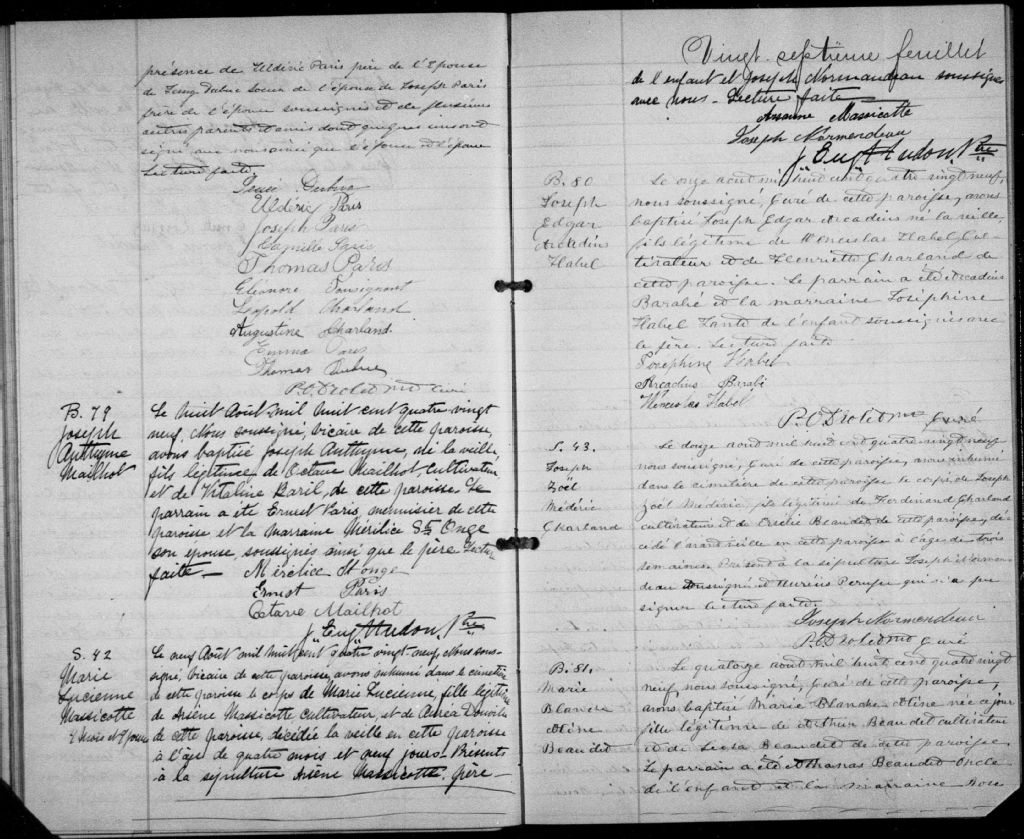 présence de Uldéric Paris père de l'Epouse
de Dubuc Soeur de l'épouse de Joseph Paris
frère de l'épouse soussignés et de plusieurs
autres parents et amis dont quelques uns ont
signé avec nous ainsi que l'époux et l'épouse
Lecture faite
Dubuc
Uldéric Paris
Joseph Paris
Camille Paris
Thomas Paris
Eléonore Tousignant
Léopold Charland
Augustine Charland
Emma Paris
Thomas Dubuc
P.O. Drolet Ptre curé
B. 79
Joseph
Anthyme
Mailhot
Le huit Août mil huit cent quatre vingt
neuf, Nous soussigné, vicaire de cette paroisse,
avons baptisé Joseph Anthyme, né la veille,
fils légitime de Octave Mailhot Cultivateur
et de Vitaline Baril, de cette paroisse. Le
parrain a été Ernest Paris, menuisier de cette
paroisse et la marraine Mérilice St Onge
son épouse, soussignés ainsi que le père. Lecture
faite —
Mérélice St onge
Ernest Paris
Octave Mailhot
J. Eug. Hudon Ptre
S. 42
Marie
Lucienne
Massicotte
4 mois et 9 jours
Le neuf Août mil huit cent quatre vingt-neuf, Nous sous-
signé, vicaire de cette paroisse, avons inhumé dans le cimetière
de cette paroisse le corps de Marie Lucienne, fille légitime
de Arsène Massicotte cultivateur, et de Auréa Douville
de cette paroisse, décédée la veille en cette paroisse
à l'âge de quatre mois et neuf jours. Présents
à la sépulture Arsène Massicotte, père —
Vingt septième feuillet
de l'enfant et Joseph Normandeau soussignés
avec nous. Lecture faite
Arsenne Massicotte
Joseph Normendeau
J. Eug. Hudon Ptre
B. 80
Joseph
Edgar
Arcadius
Habel
Le onze aout mil huit cent quatre vingt neuf,
nous soussigné, Curé de cette paroisse, avons
baptisé Joseph Edgar Arcadius né la veille,
fils légitime de Wenceslas Habel Cul-
tivateur et de Henriette Charland de
cette paroisse. Le parrain a été Arcadius
Barabé et la marraine Joséphine
Habel Tante de l'enfant soussignés avec
le père. Lecture faite
Joséphine Habel
Arcadius Barabé
Wenceslas Habel
P.O. Drolet Ptre Curé
S. 43.
Joseph
Zoël
Médéric
Charland
Le douze aout mil huit cent quatre vingt neuf
nous soussigné, Curé de cette paroisse, avons inhumé
dans le cimetière de cette paroisse le corps de Joseph
Zoël Médéric, fils légitime de Ferdinand Charland
cultivateur et de Beaudet de cette paroisse, dé-
cédé l'avant veille en cette paroisse à l'age de trois
semaines. Présent à la sépulture Joseph Norman-
deau soussigné et Aurélis Perusse qui n'a pu
signer lecture faite.
Joseph Normendeau
P.O. Drolet Ptre Curé
B. 81.
Marie
Blanche
Aline
Beaudet
Le quatorze aout mil huit cent quatre vingt
neuf, nous soussigné, Curé de cette paroisse,
avons baptisé Marie Blanche Aline née ce jour
fille légitime de Arthur Beaudet cultivateur
et de Beaudet de cette paroisse.
Le parrain a été Thomas Beaudet Oncle
de l'enfant et la marraine Rose